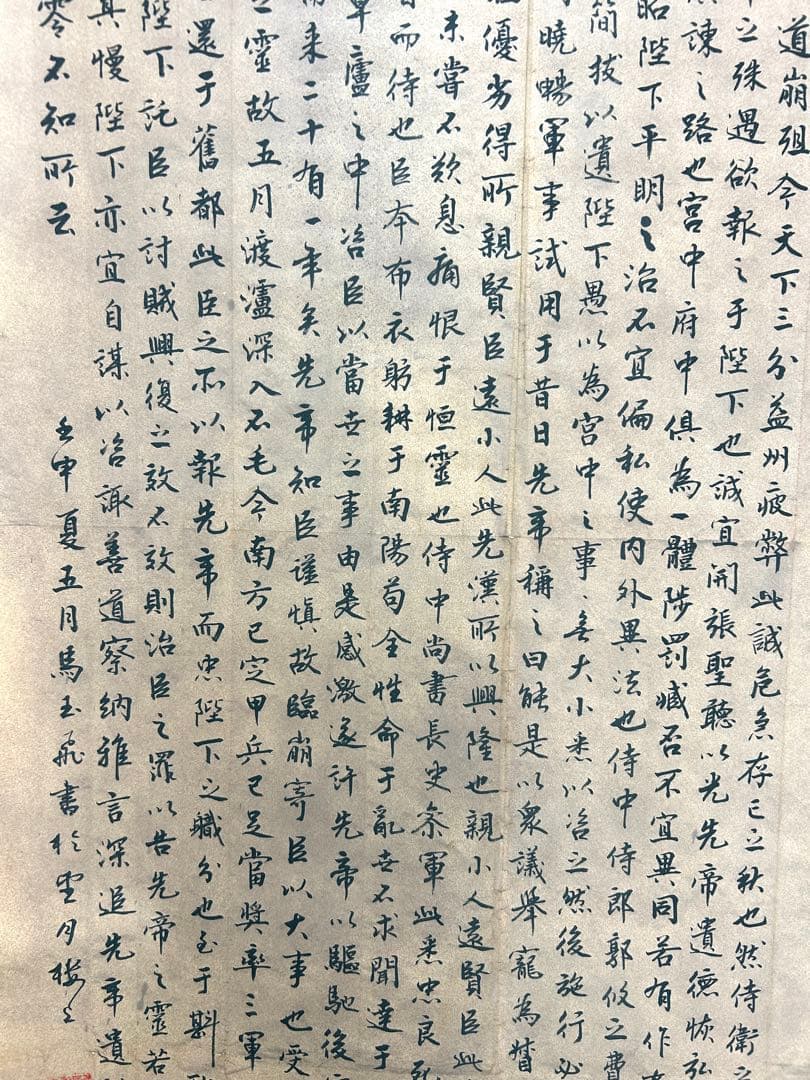 道崩殂今天下三分益州疲弊此誠危急存亡之秋也然侍衛之
之殊遇欲報之于陛下也誠宜開張聖聽以光先帝遺德恢弘
諫之路也宮中府中俱為一體陟罰臧否不宜異同若有作
昭陛下平明之治不宜偏私使內外異法也侍中侍郎郭攸之費
簡拔以遺陛下愚以為宮中之事、無大小悉以咨之然後施行必
曉暢軍事試用于昔日先帝稱之曰能是以眾議舉寵為督
優劣得所親賢臣遠小人此先漢所以興隆也親小人遠賢臣此
未嘗不歎息痛恨于恒靈也侍中尚書長史參軍此悉忠良
而待也臣本布衣躬耕于南陽苟全性命于亂世不求聞達于
草廬之中咨臣以當世之事由是感激遂許先帝以驅馳後
來二十有一年矣先帝知臣謹慎故臨崩寄臣以大事也受
之靈故五月渡瀘深入不毛今南方已定甲兵已足當奬率三軍
還于舊都此臣之所以報先帝而忠陛下之職分也至于斟
陛下託臣以討賊興復之效不效則治臣之罪以告先帝之靈若
其慢陛下亦宜自謀以咨諏善道察納雅言深追先帝遺
零不知所云
壬申夏五月馬玉飛書於望月樓上